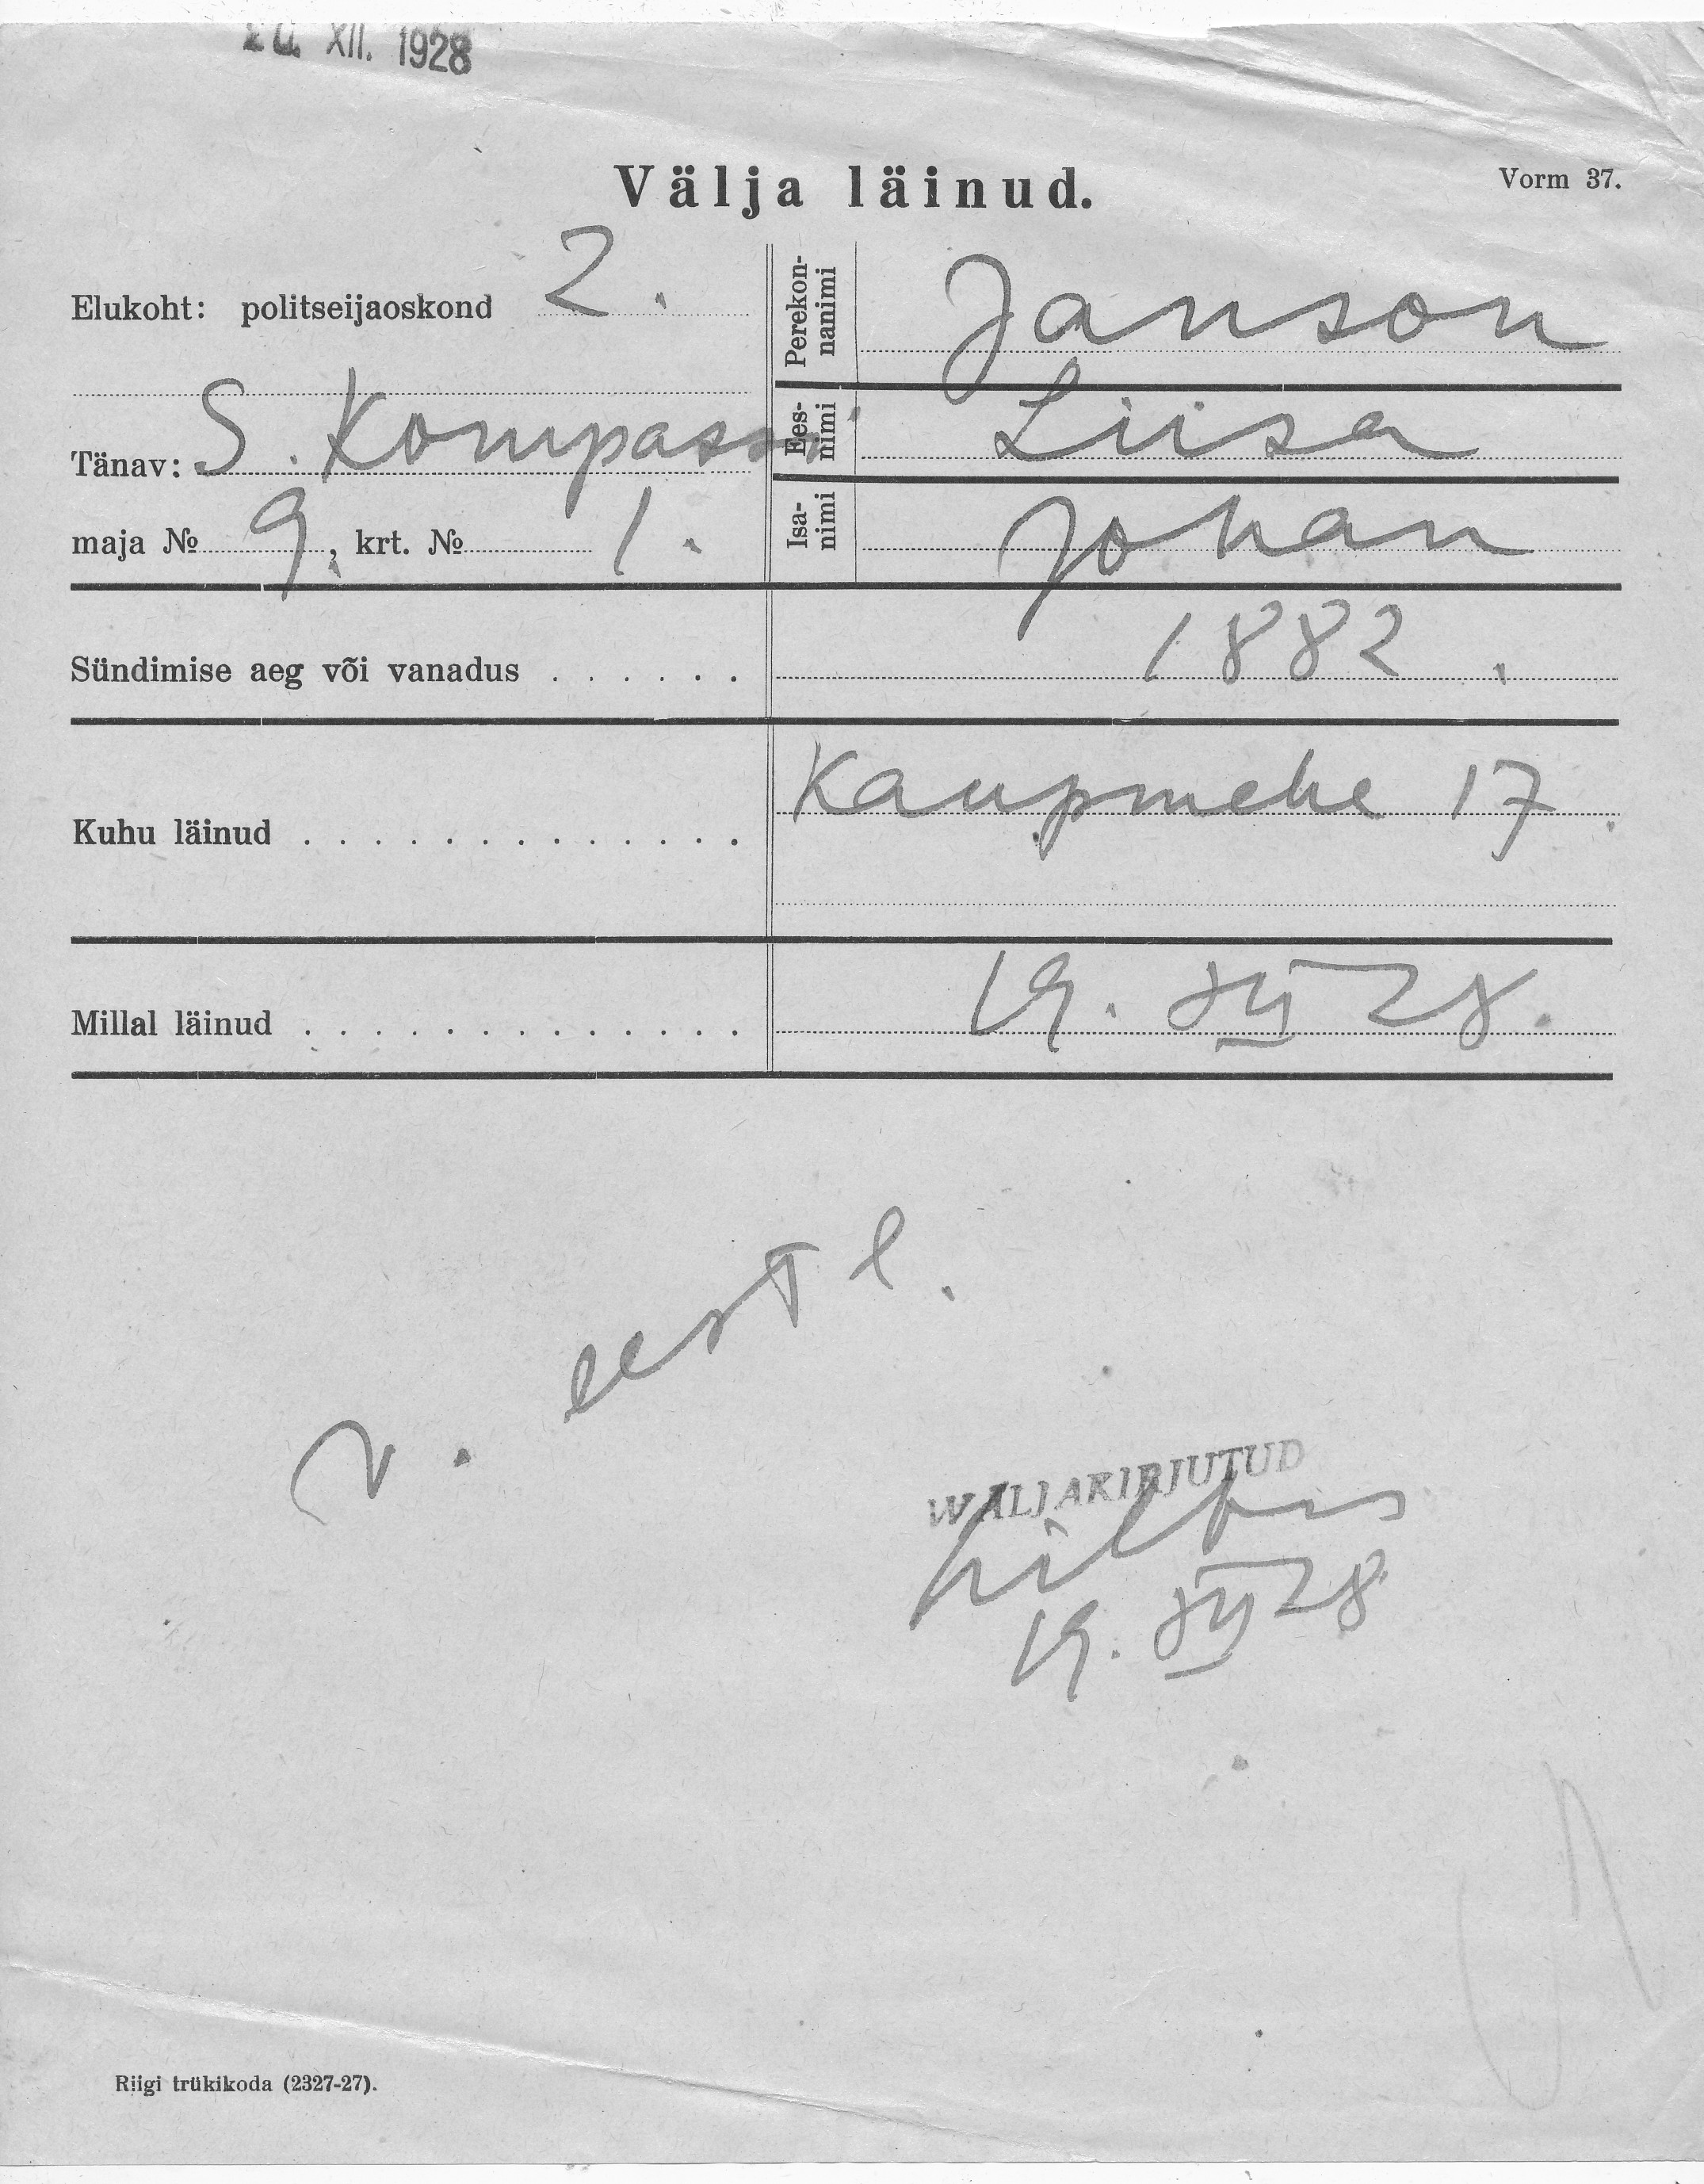 20. XII. 1928
Välja läinud.
Vorm 37.
Elukoht: politseijaoskond 2.
Perekon-
nanimi
Janson
Tänav: S. Kompassi
Ees-
nimi
Liisa
maja № 9, krt. № 1.
Isa-
nimi
Johan
Sündimise aeg või vanadus . . . . . . 1882.
Kuhu läinud . . . . . . . . . . . . . Kaupmehe 17.
Millal läinud . . . . . . . . . . . . . 19. XII 28.
WÄLJAKIRJUTUD
19. XII 28.
Riigi trükikoda (2327-27).